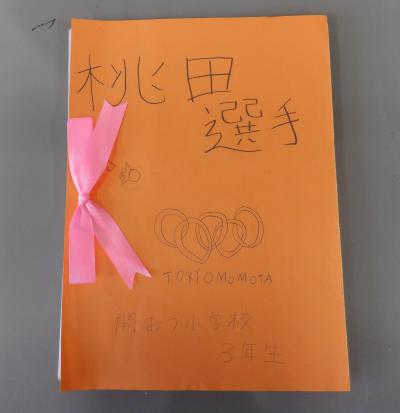 桃田
選手
TOKYOMOMOTA
開おう小学校
3年生